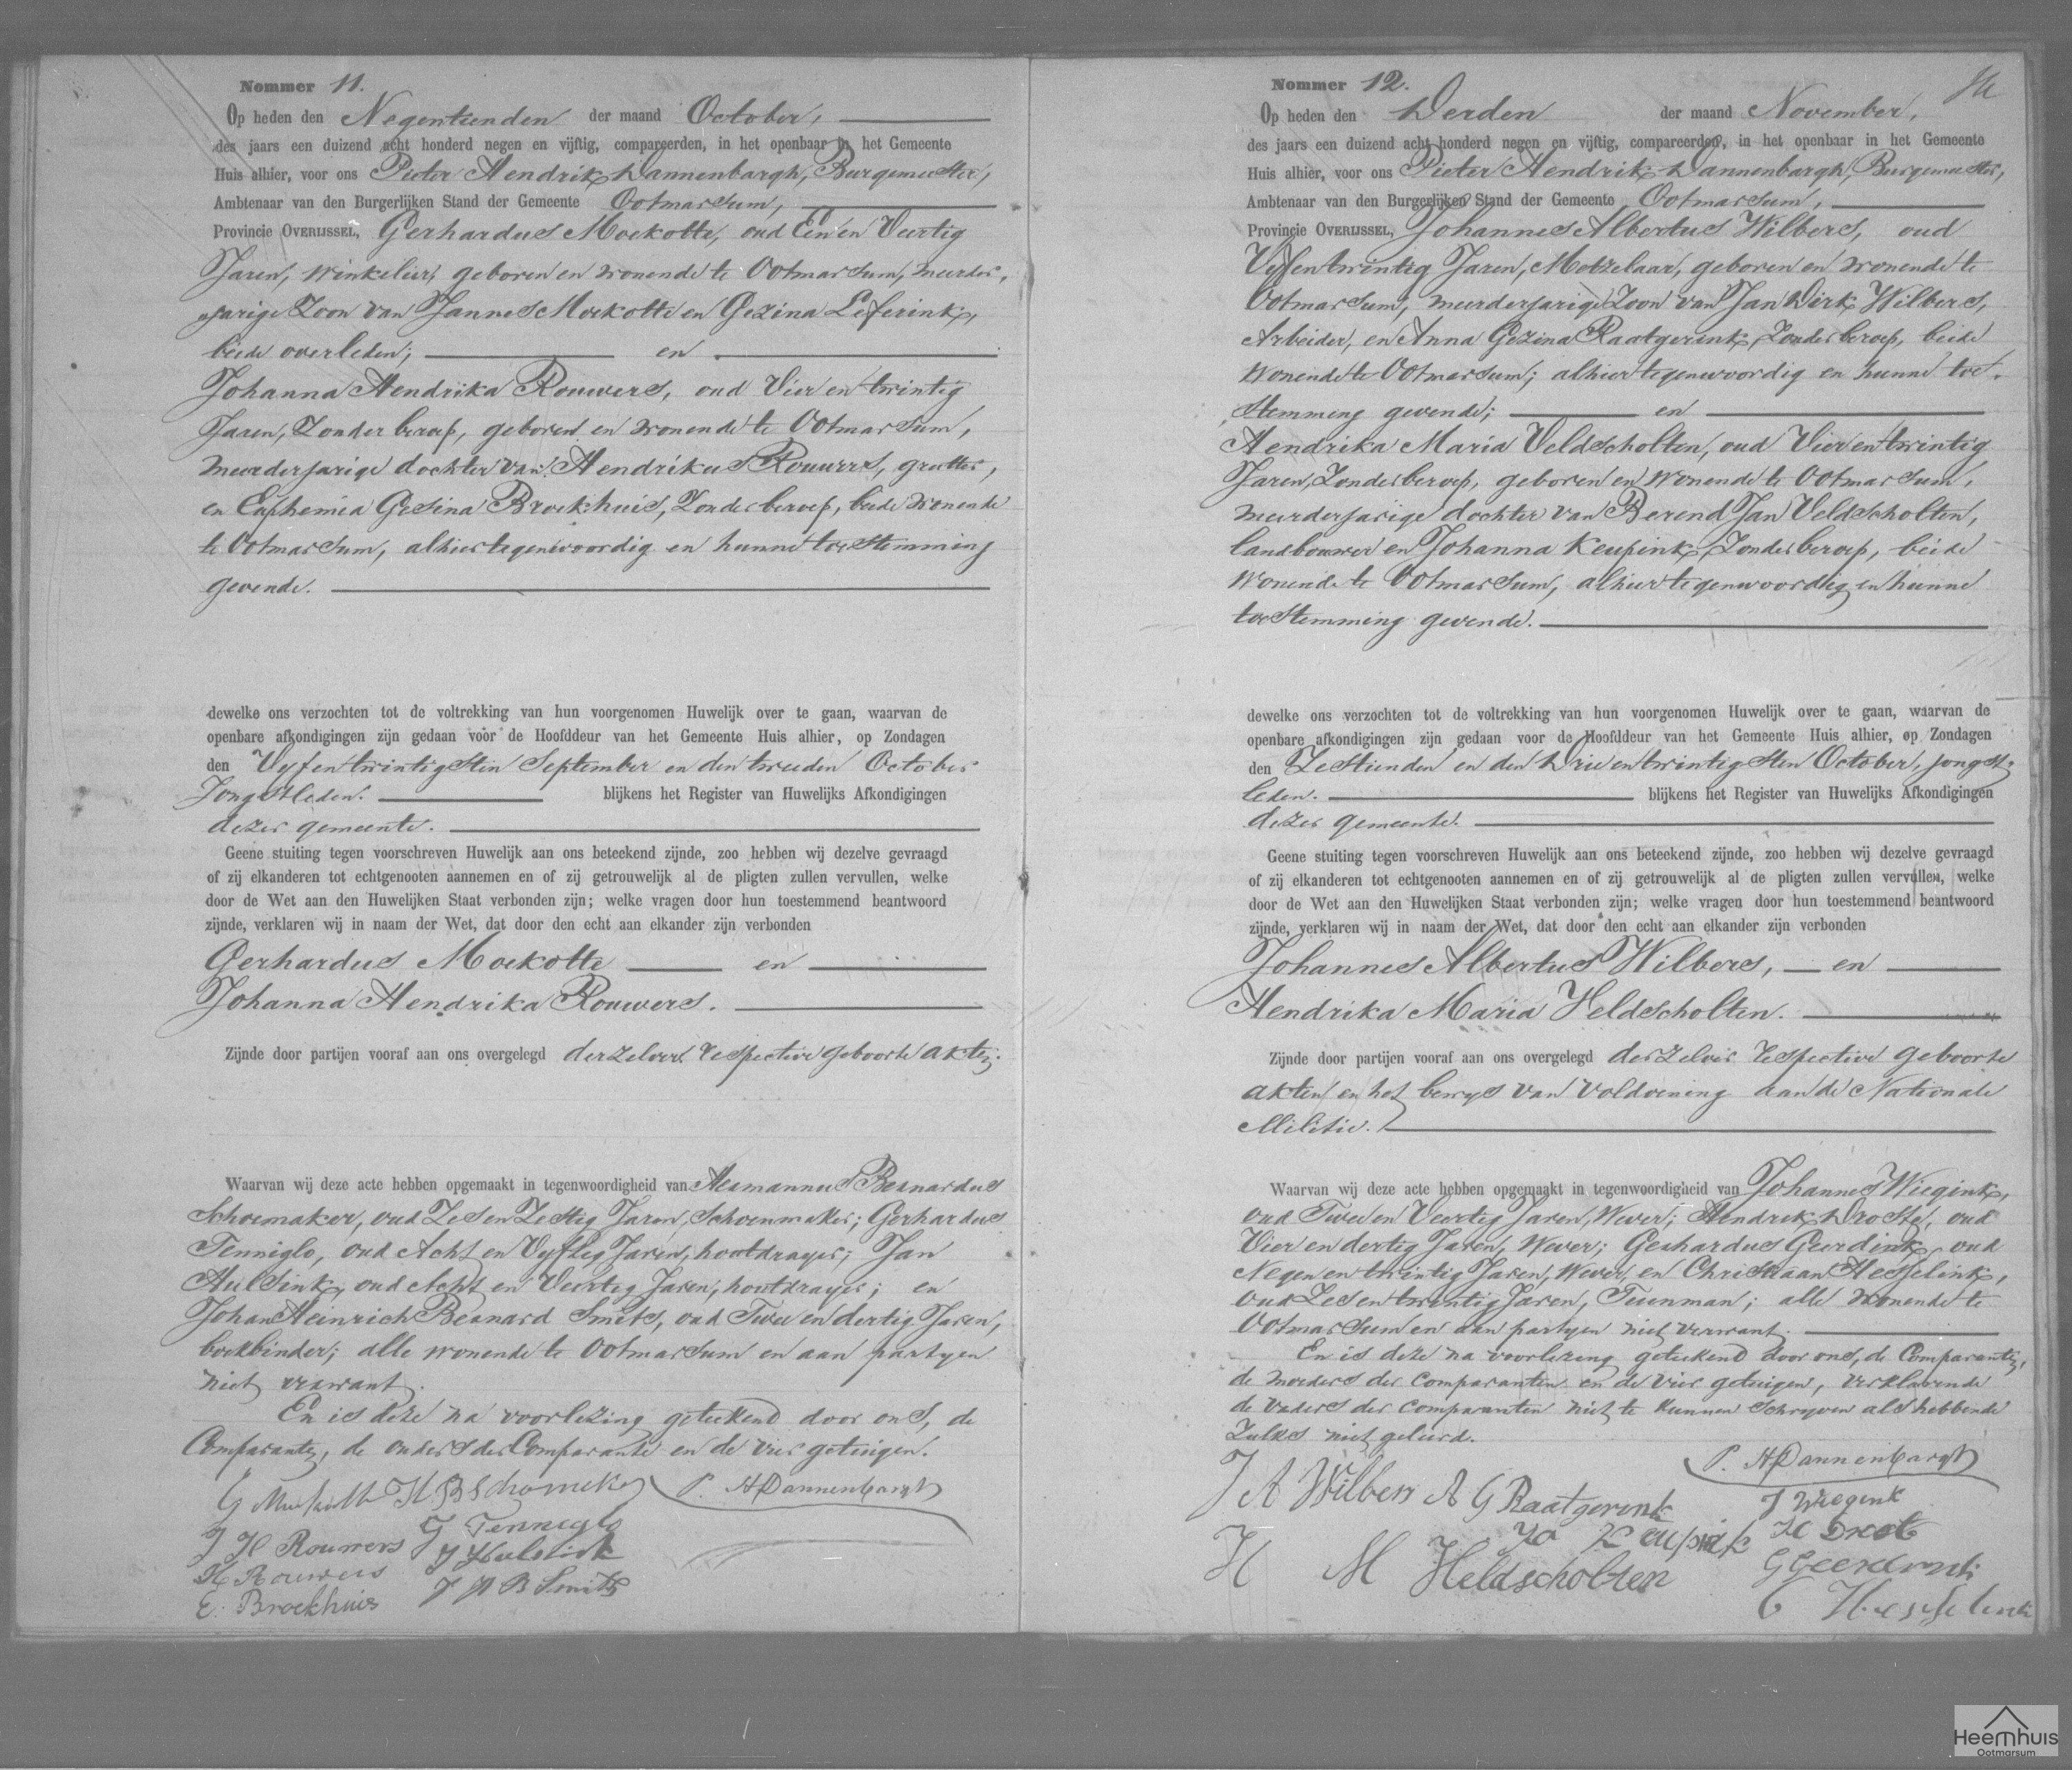 Nommer 11.
Op heden den Negentienden der maand October,
des jaars een duizend acht honderd negen en vijftig, compareerden, in het openbaar in het Gemeente
Huis alhier, voor ons Pieter Hendrik Dannenbargh, Burgemeester,
Ambtenaar van den Burgerlijken Stand der Gemeente Ootmarsum,
Provincie OVERIJSSEL, Gerhardus Moekotte, oud Een en Veertig
Jaren, winkelier, geboren en wonende te Ootmarsum, meerder-
jarige Zoon van Jannes Moekotte en Gezina Leferink,
beide overleden; en
Johanna Hendrika Rouwers, oud Vier en twintig
Jaren, Zonder beroep, geboren en wonende te Ootmarsum,
meerderjarige dochter van Hendrikus Rouwers, grutter,
en Euphemia Gesina Broekhuis, Zonder beroep, beide wonende
te Ootmarsum, alhier tegenwoordig en hunne toestemming
gevende.
dewelke ons verzochten tot de voltrekking van hun voorgenomen Huwelijk over te gaan, waarvan de
openbare afkondigingen zijn gedaan voor de Hoofddeur van het Gemeente Huis alhier, op Zondagen
den Vyfentwintigsten September en den tweeden October
Jongstleden. blijkens het Register van Huwelijks Afkondigingen
dezer gemeente.
Geene stuiting tegen voorschreven Huwelijk aan ons beteekend zijnde, zoo hebben wij dezelve gevraagd
of zij elkanderen tot echtgenooten aannemen en of zij getrouwelijk al de pligten zullen vervullen, welke
door de Wet aan den Huwelijken Staat verbonden zijn; welke vragen door hun toestemmend beantwoord
zijnde, verklaren wij in naam der Wet, dat door den echt aan elkander zijn verbonden
Gerhardus Moekotte en
Johanna Hendrika Rouwers.
Zijnde door partijen vooraf aan ons overgelegd derzelver respective geboorte akten.
Waarvan wij deze acte hebben opgemaakt in tegenwoordigheid van Hermannus Bernardus
Schoemaker, oud Zes en Zestig Jaren, Schoenmaker; Gerhardus
Tenniglo, oud Acht en Vyftig Jaren, houtdrayer; Jan
Hulsink, oud Acht en Veertig Jaren, houtdrayer; en
Johan Heinrich Bernard Smits, oud Twee en dertig Jaren,
boekbinder; alle wonende te Ootmarsum en aan partyen
niet verwant.
En is deze na voorlezing geteekend door ons, de
Comparanten, de ouders der Comparante en de vier getuigen.
G Moekotte H B Schoemaker P. H Dannenbargh
J H Rouwers G Tenniglo
H Rouwers J Hulsink
E. Broekhuis J H B Smits
Nommer 12.
Op heden den Derden der maand November,
des jaars een duizend acht honderd negen en vijftig, compareerden, in het openbaar in het Gemeente
Huis alhier, voor ons Pieter Hendrik Dannenbargh, Burgemeester,
Ambtenaar van den Burgerlijken Stand der Gemeente Ootmarsum,
Provincie OVERIJSSEL, Johannes Albertus Wilbers, oud
Vyfentwintig Jaren, Metzelaar, geboren en wonende te
Ootmarsum, meerderjarige Zoon van Jan Dirk Wilbers,
Arbeider, en Anna Gezina Raatgerink, Zonder beroep, beide
wonende te Ootmarsum; alhier tegenwoordig en hunne toe-
stemming gevende; en
Hendrika Maria Veldscholten, oud Vier en twintig
Jaren, Zonder beroep, geboren en wonende te Ootmarsum,
meerderjarige dochter van Berend Jan Veldscholten,
landbouwer en Johanna Keupink, Zonder beroep, beide
wonende te Ootmarsum, alhier tegenwoordig en hunne
toestemming gevende.
dewelke ons verzochten tot de voltrekking van hun voorgenomen Huwelijk over te gaan, waarvan de
openbare afkondigingen zijn gedaan voor de Hoofddeur van het Gemeente Huis alhier, op Zondagen
den Zestienden en den Drie en twintigsten October, jongst-
leden. blijkens het Register van Huwelijks Afkondigingen
dezer gemeente.
Geene stuiting tegen voorschreven Huwelijk aan ons beteekend zijnde, zoo hebben wij dezelve gevraagd
of zij elkanderen tot echtgenooten aannemen en of zij getrouwelijk al de pligten zullen vervullen, welke
door de Wet aan den Huwelijken Staat verbonden zijn; welke vragen door hun toestemmend beantwoord
zijnde, verklaren wij in naam der Wet, dat door den echt aan elkander zijn verbonden
Johannes Albertus Wilbers, en
Hendrika Maria Veldscholten.
Zijnde door partijen vooraf aan ons overgelegd derzelver respective geboorte
akten en het bewys van voldoening aan de Nationale
Militie.
Waarvan wij deze acte hebben opgemaakt in tegenwoordigheid van Johannes Wiegink,
oud Twee en Veertig Jaren, Wever; Hendrik Droste, oud
Vier en dertig Jaren, Wever; Gerhardus Geerdink, oud
Negen en twintig Jaren, Wever, en Christiaan Hesselink,
oud Zes en twintig Jaren, Tuinman; alle wonende te
Ootmarsum en aan partyen niet verwant.
En is deze na voorlezing geteekend door ons, de Comparanten,
de moeders der comparanten en de vier getuigen, verklarende
de vaders der comparanten niet te kunnen schryven als hebbende
zulks niet geleerd.
P. H Dannenbargh
J A Wilbers A G Raatgerink J Wiegink
Jo Keupink H Droste
H M Veldscholten G Geerdink
C Hesselink
Heemhuis
Ootmarsum